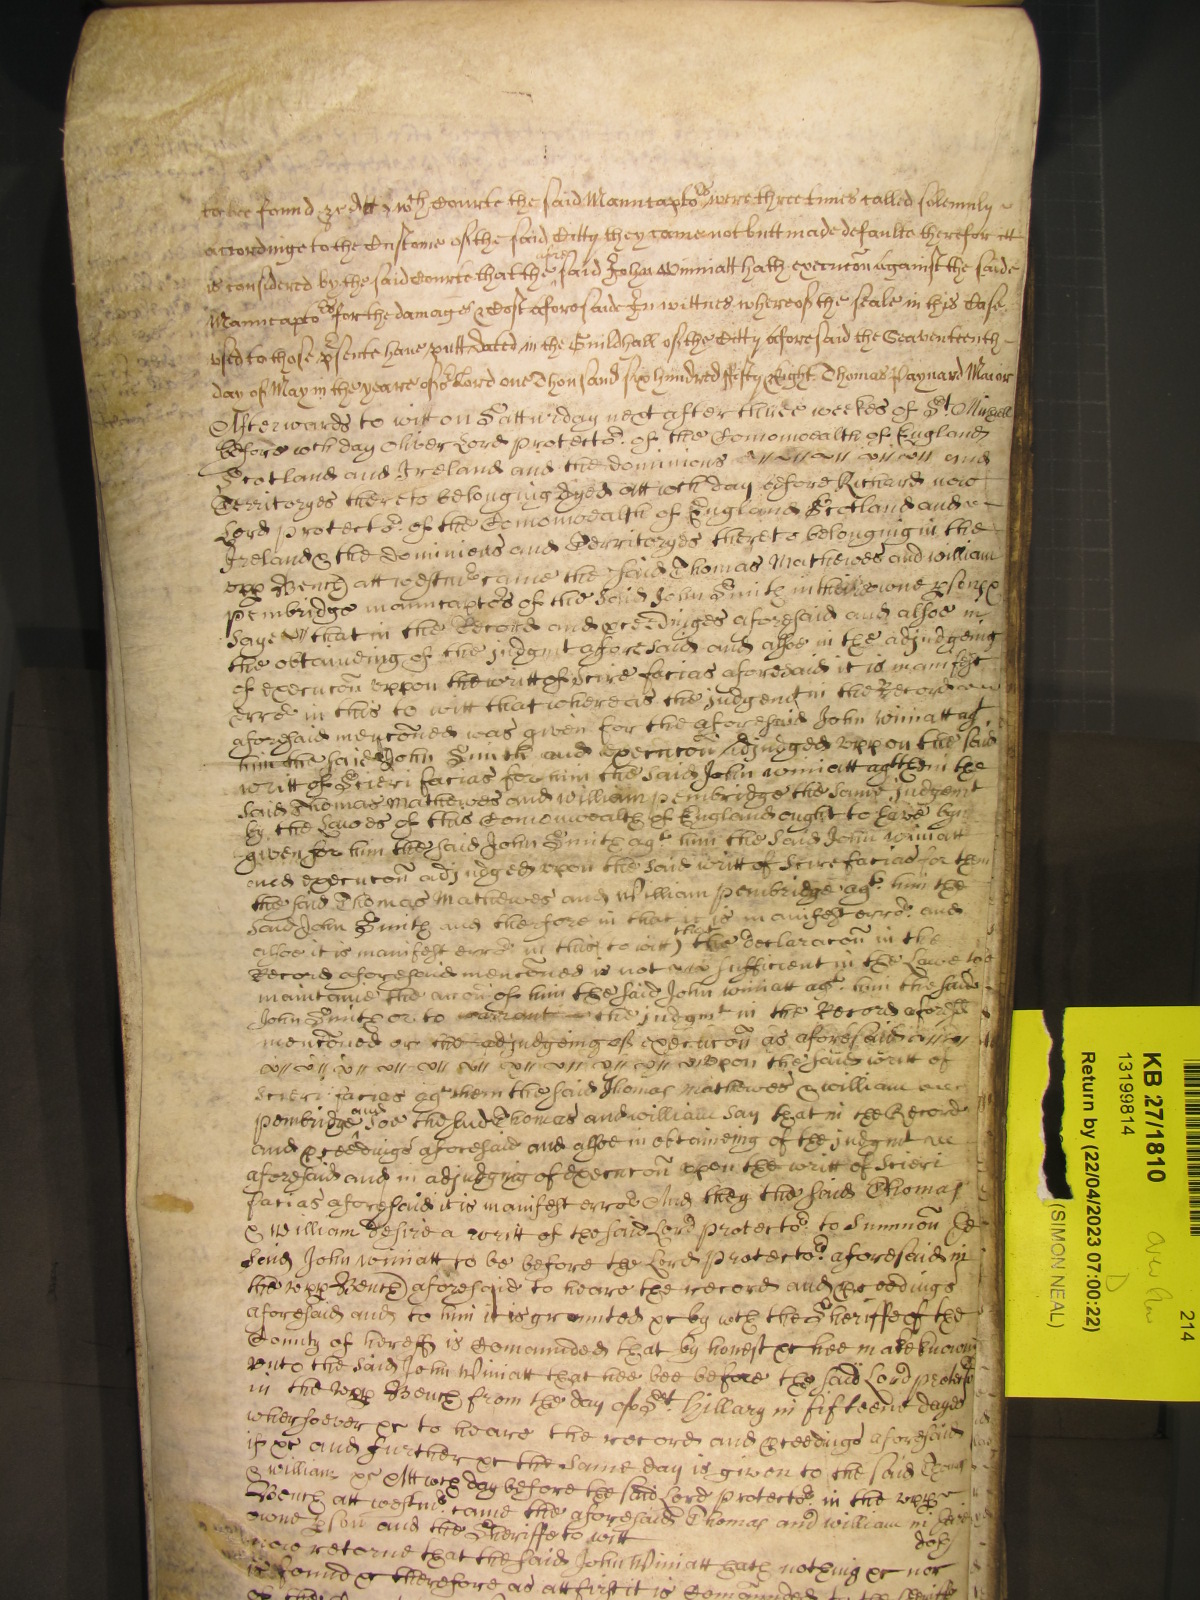 to bee found &c Att wch Courte the said Manucaptors were three times called solemnly
accordinge to the Custome of the said Citty they came not butt made defaulte therefor itt
is considered by the said Courte that the afore said John Winniatt hath execucon against the saide
Manucaptors for the damages & Cost aforesaide In wittnes whereof the seale in this Case
used to those psente have putt Dated in the Guildhall of the Citty aforesaid the Seaventeenth
day of May in the yeare of or Lord one Thousand six hundred fifty Eight Thomas Paynard Maior
Afterwards to witt on Satturday next after three weekes of St Michaell
before wch day Oliver Lord Protector of the Comonwealth of England
Scotland and Ireland and the dominions and
Territoryes thereto belonging dyed att wch day before Richard now
Lord protector of the Comonwealth of England Scotland and
Ireland & the dominions and Territoryes thereto belonging in the
upp Bench att westmr came the said Thomas Mathewes and william
Pembridge manucaptors of the said John Smith in their owne psence
Saye that in the Record and pceedinges aforesaid and alsoe in
the obtaineing of the judgmt aforesaid and alsoe in the adjudgeing
of execucon uppon the writt of scire facias aforesaid it is manifest
error in this to witt that whereas the judgemt in the Record
aforesaid mencioned was given for the aforesaid John winiatt agt
him the said John Smith and execucon adjudged uppon the said
writt of Scieri facias for him the said John winiatt agt them the
said Thomas Mathewes and William pembridge the same judgemt
by the Lawes of this Comonwealth of England ought to have byn
given for him the said John Smith agt him the said John winiatt
and execucon adjudged upon the said writt of Scire facias for them
the said Thomas Mathewes and William pembridge agt him the
said John Smith and therefore in that it is manifest error and
alsoe it is manifest error in this to witt that the declaracon in the
Record aforesaid mencioned is not sufficient in the Lawe to
maintaine the accon of him the said John winiatt agt him the said
John Smith or to warrant the judgmt in the Record aforesd
mencioned or the adjudgeing of execucon as aforesaid
upon the said writt of
Scieri facias agt them the said Thomas Mathewes & william
pembridge and soe the said Thomas and william say that in the Record
and pceedings aforesaid and alsoe in obtaineing of the judgmt
aforesaid and in adjudging of execucon upon the writt of Scieri
facias aforesaid it is manifest error And they the said Thomas
& William desire a writt of the said Lord protector to Summon the
said John winiatt to be before the Lord Protector aforesaid in
the upp Bench aforesaid to heare the record and pceedings
aforesaid and to him it is graunted &c by wch the Sheriffe of the
County of hereff is Comaunded that by honest &c hee make knowne
unto the said John Winiatt that hee bee before the said Lord protector
in the upp Bench from the day of St Hillary in fifteene dayes
whersoever &c to heare the record and pceedings aforesaid
if &c and further &c the same day is given to the said Thomas
& william &c Att wch day before the said Lord protector in the upp
Bench att westmr came the aforesaid Thomas and william in their
owne pson and the Sheriffe to witt
now retorne that the said John Winiatt hath nothing &c nor
is found &c therefore as att first it is Comaunded to the Sheriffe
214
KB 27/1810
13199814
Return by (22/04/2023 07:00:22)
(SIMON NEAL)